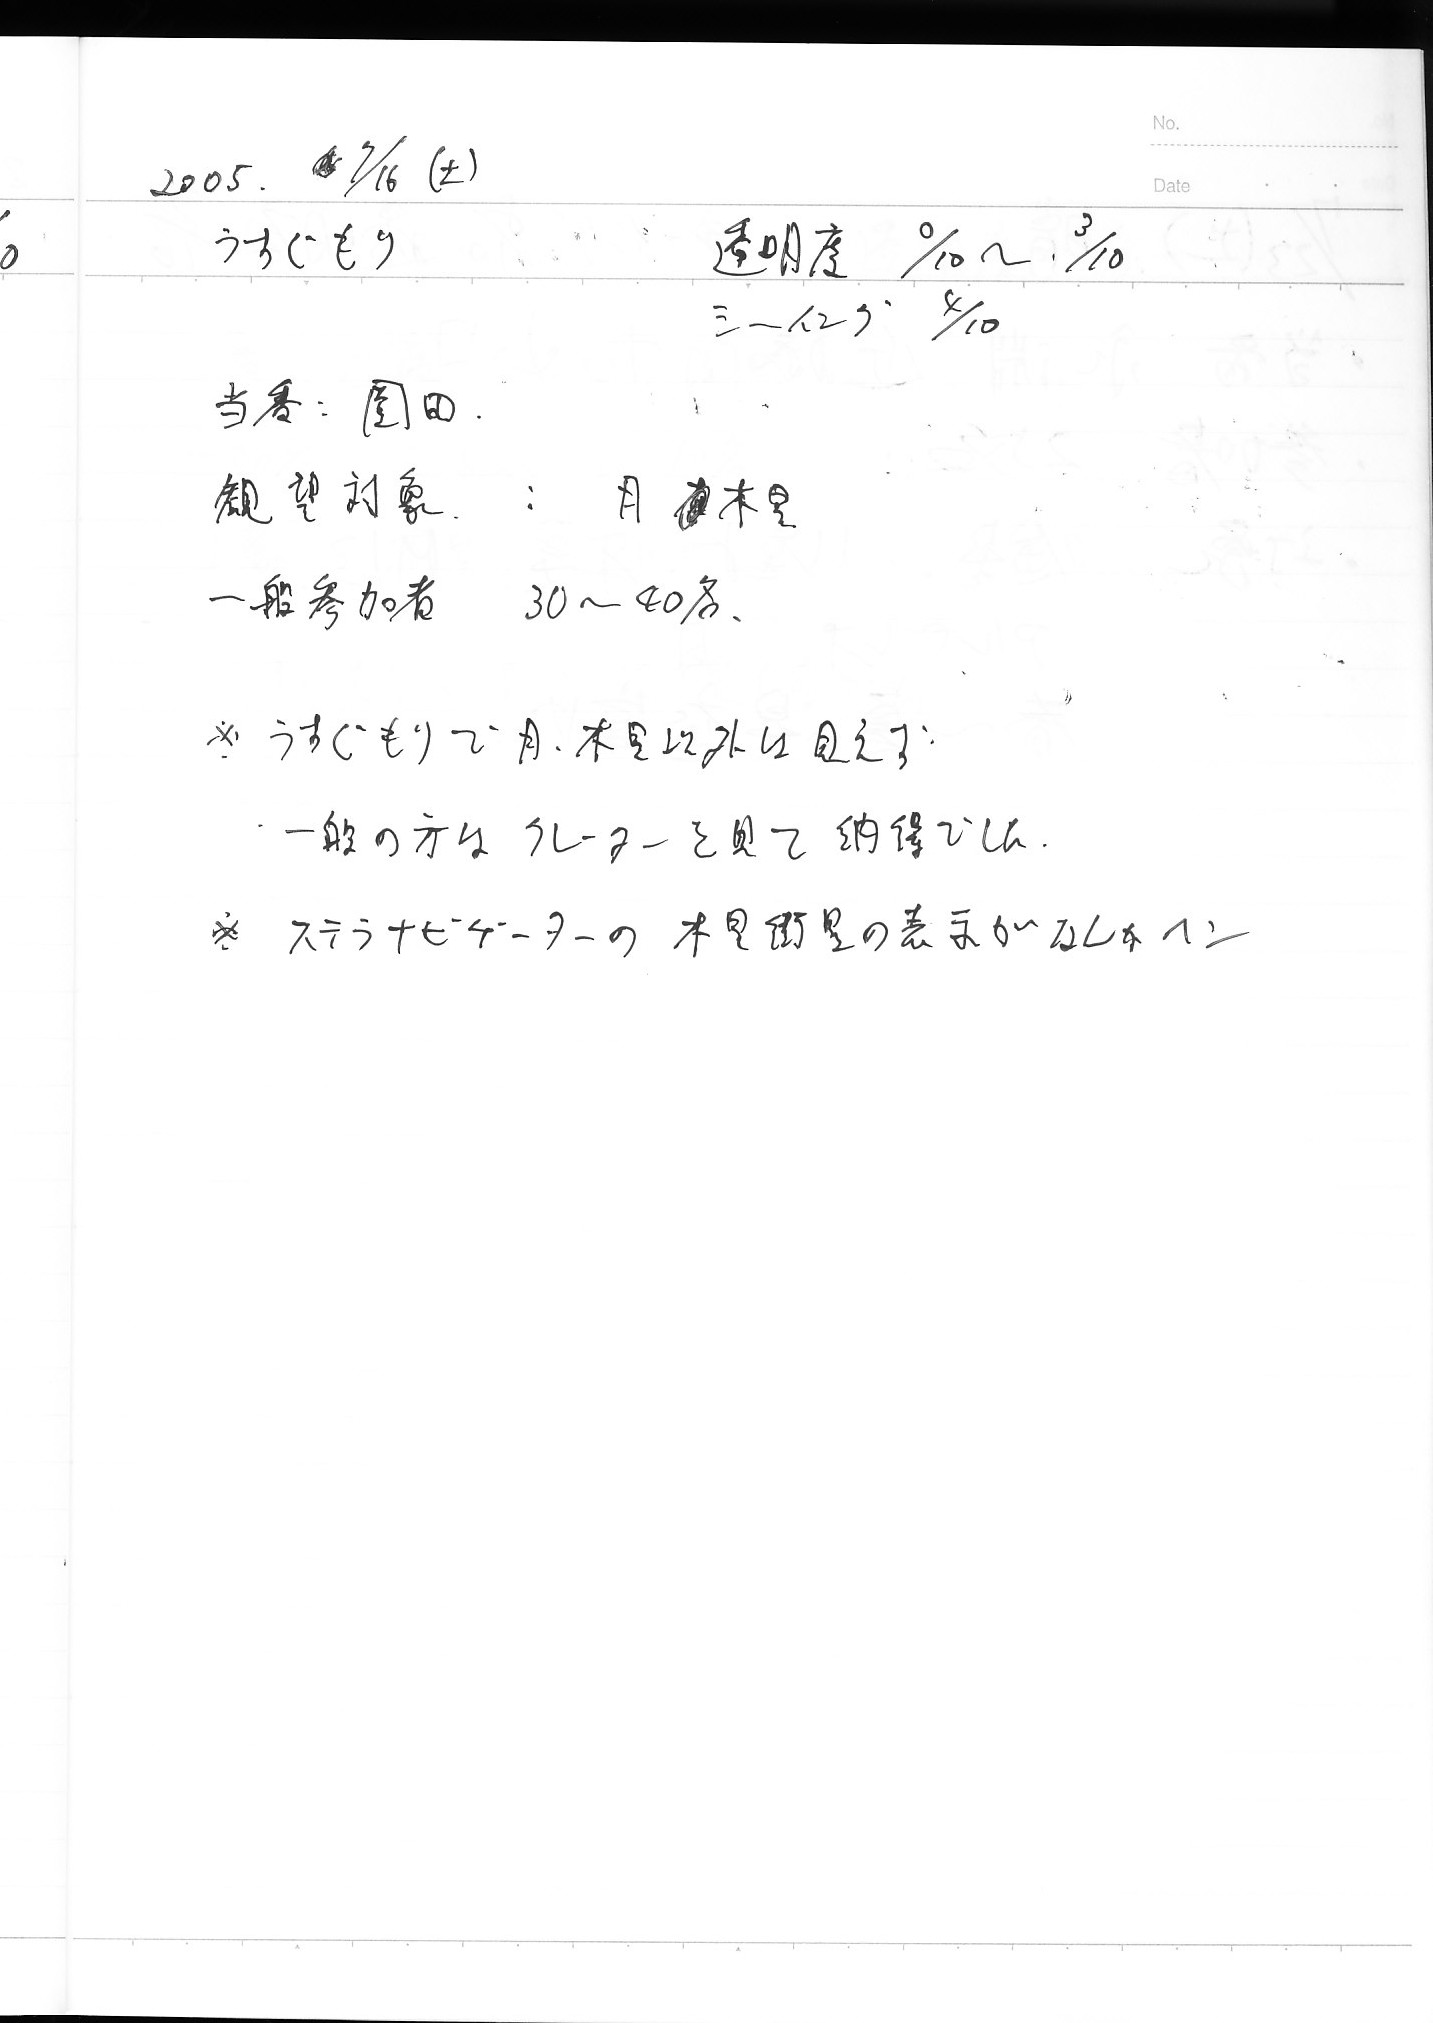 No.
Date
2005. 7/16 (土)
うすぐもり 透明度 0/10〜3/10
シーイング 4/10
当番: 園田.
観望対象 : 月 木星
一般参加者 30〜40名、
※ うすぐもりで月、木星以外は見えず
一般の方は クレーターを見て 納得でした.
※ ステラナビゲーターの 木星衛星の表示が なしか ヘン